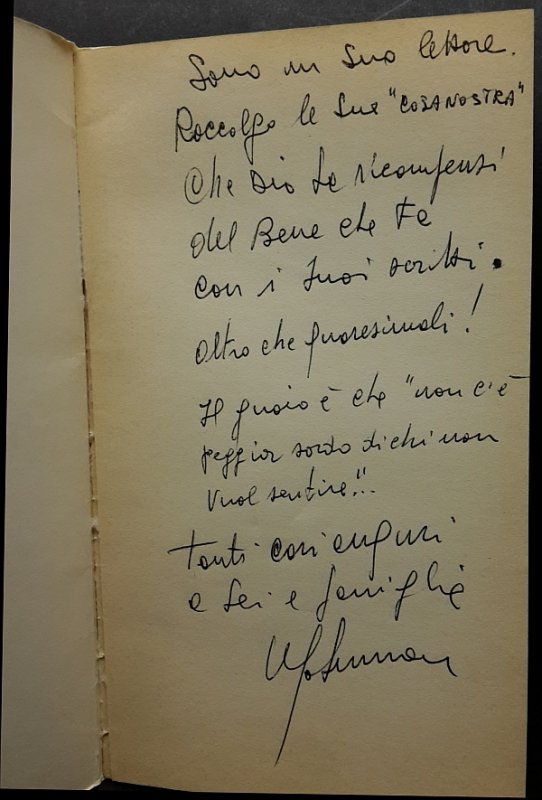 Sono un Suo lettore.
Raccolgo le Sue "COSA NOSTRA"
Che Dio La ricompensi
del Bene che fa
con i Suoi scritti.
Altro che quaresimali!
Il guaio è che "non c'è
peggior sordo di chi non
vuol sentire"...
Tanti cari auguri
a Lei e famiglia